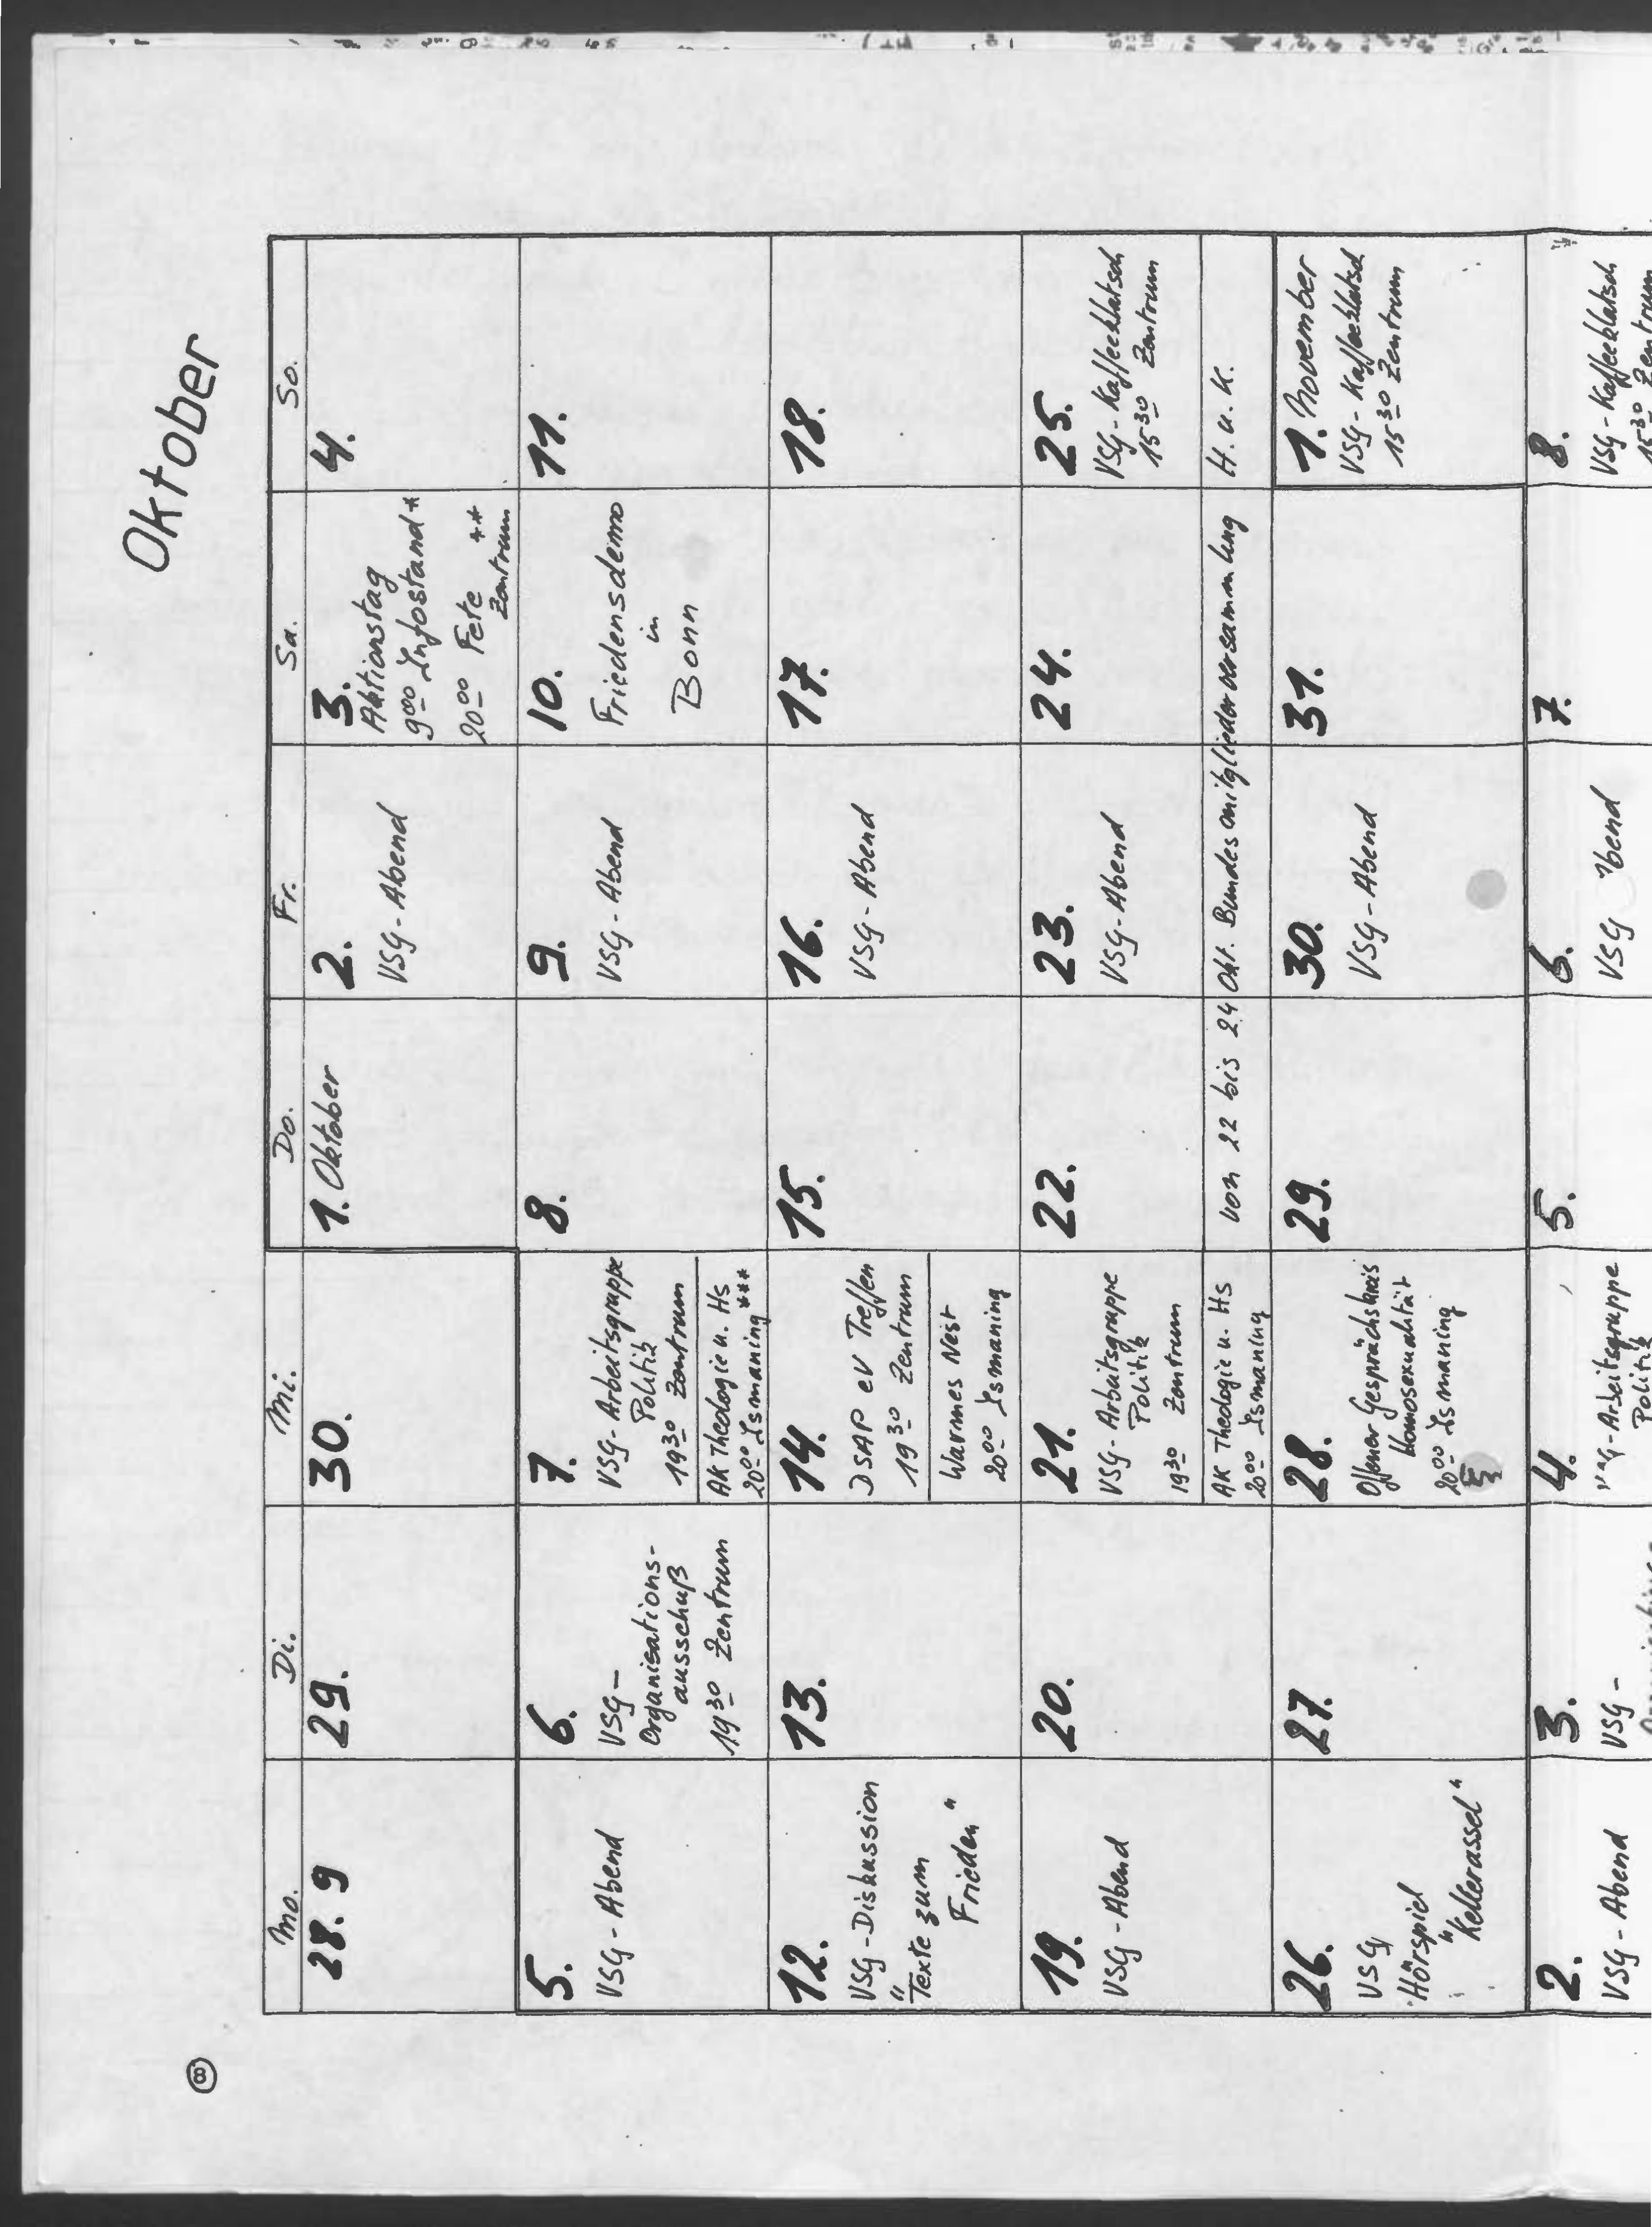 Oktober
Mo. Di. Mi. Do. Fr. Sa. So.
28. 9
29.
30.
1. Oktober
2.
VSG-Abend
3.
Aktionstag
9 00 Infostand*
20 00 Fete **
Zentrum
4.
5.
VSG-Abend
6.
VSG-
Organisations-
ausschuß
19 30 Zentrum
7.
VSG-Arbeitsgruppe
Politik
19 30 Zentrum
AK Theologie u. Hs
20 00 Ismaning ***
8.
9.
VSG-Abend
10.
Friedensdemo
in
Bonn
11.
12.
VSG-Diskussion
"Texte zum
Frieden"
13.
14.
DSAP eV Treffen
19 30 Zentrum
Warmes Nest
20 00 Ismaning
15.
16.
VSG-Abend
17.
18.
19.
VSG-Abend
20.
21.
VSG-Arbeitsgruppe
Politik
19 30 Zentrum
AK Theologie u. Hs
20 00 Ismaning
22.
23.
VSG-Abend
24.
25.
VSG-Kaffeeklatsch
15 30 Zentrum
von 22 bis 24 Okt. Bundesmitgliederversammlung H. u. K.
26.
VSG
Hörspiel
"Kellerassel"
27.
28.
Offener Gesprächskreis
Homosexualität
20 00 Ismaning
29.
30.
VSG-Abend
31.
1. November
VSG-Kaffeeklatsch
15 30 Zentrum
2.
VSG-Abend
3.
VSG-
4.
VSG-Arbeitsgruppe
Politik
5.
6.
VSG Abend
7.
8.
VSG-Kaffeeklatsch
15 30 Zentrum
8